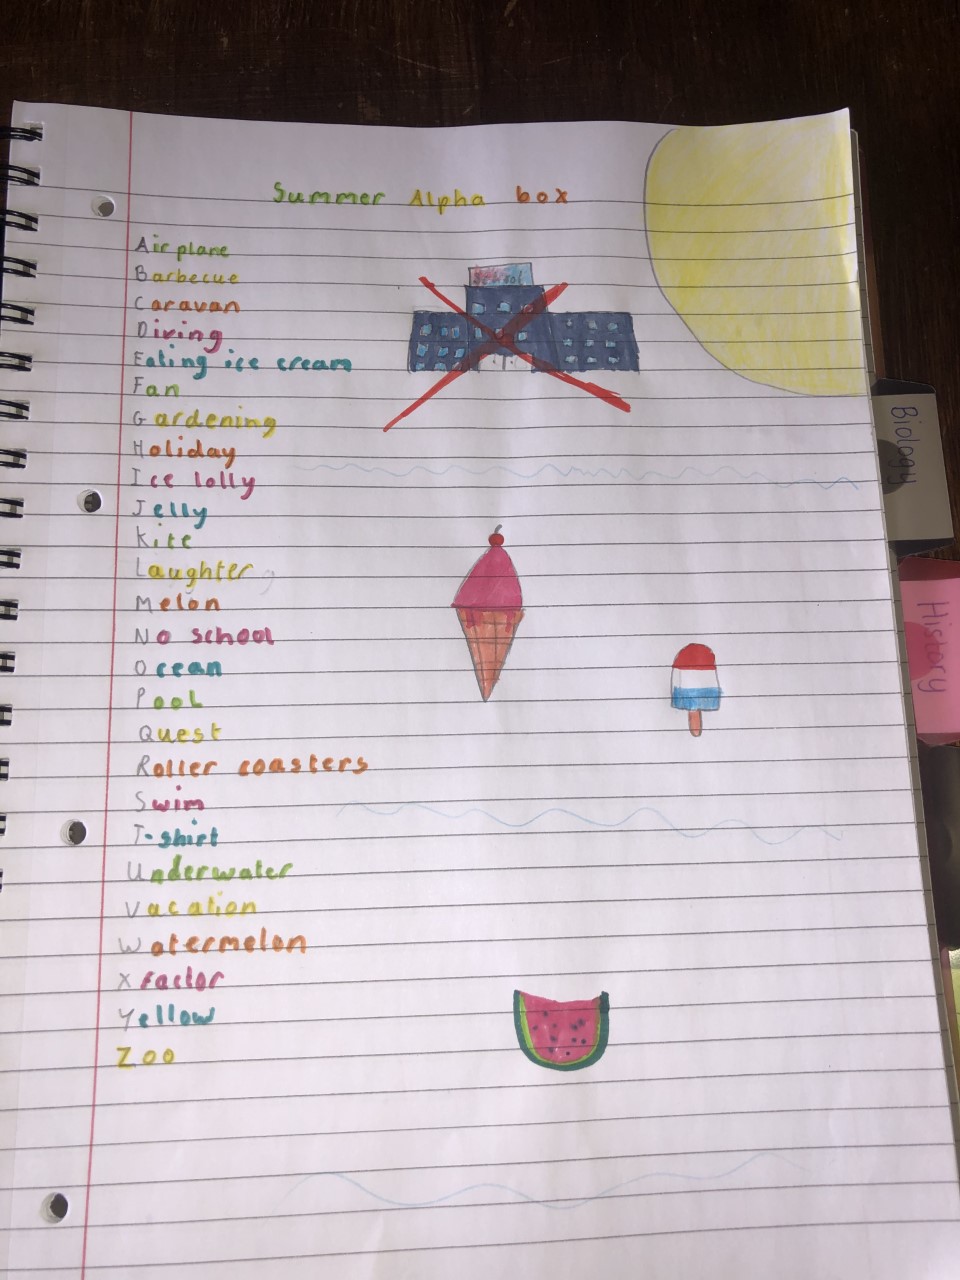 Summer Alpha box
Airplane
Barbecue
Caravan
Diving
Eating ice cream
Fan
Gardening
Holiday
Ice lolly
Jelly
Kite
Laughter
Melon
No school
Ocean
Pool
Quest
Roller coasters
Swim
T-shirt
Underwater
Vacation
Watermelon
X Factor
Yellow
Zoo
School
Biology
History